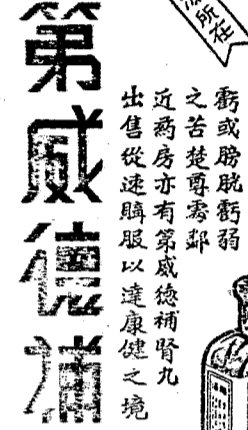 所在
虧或膀胱虧弱
之苦楚尊寓鄰
近葯房亦有第威德補腎丸
出售從速購服以達康健之境
第威德補